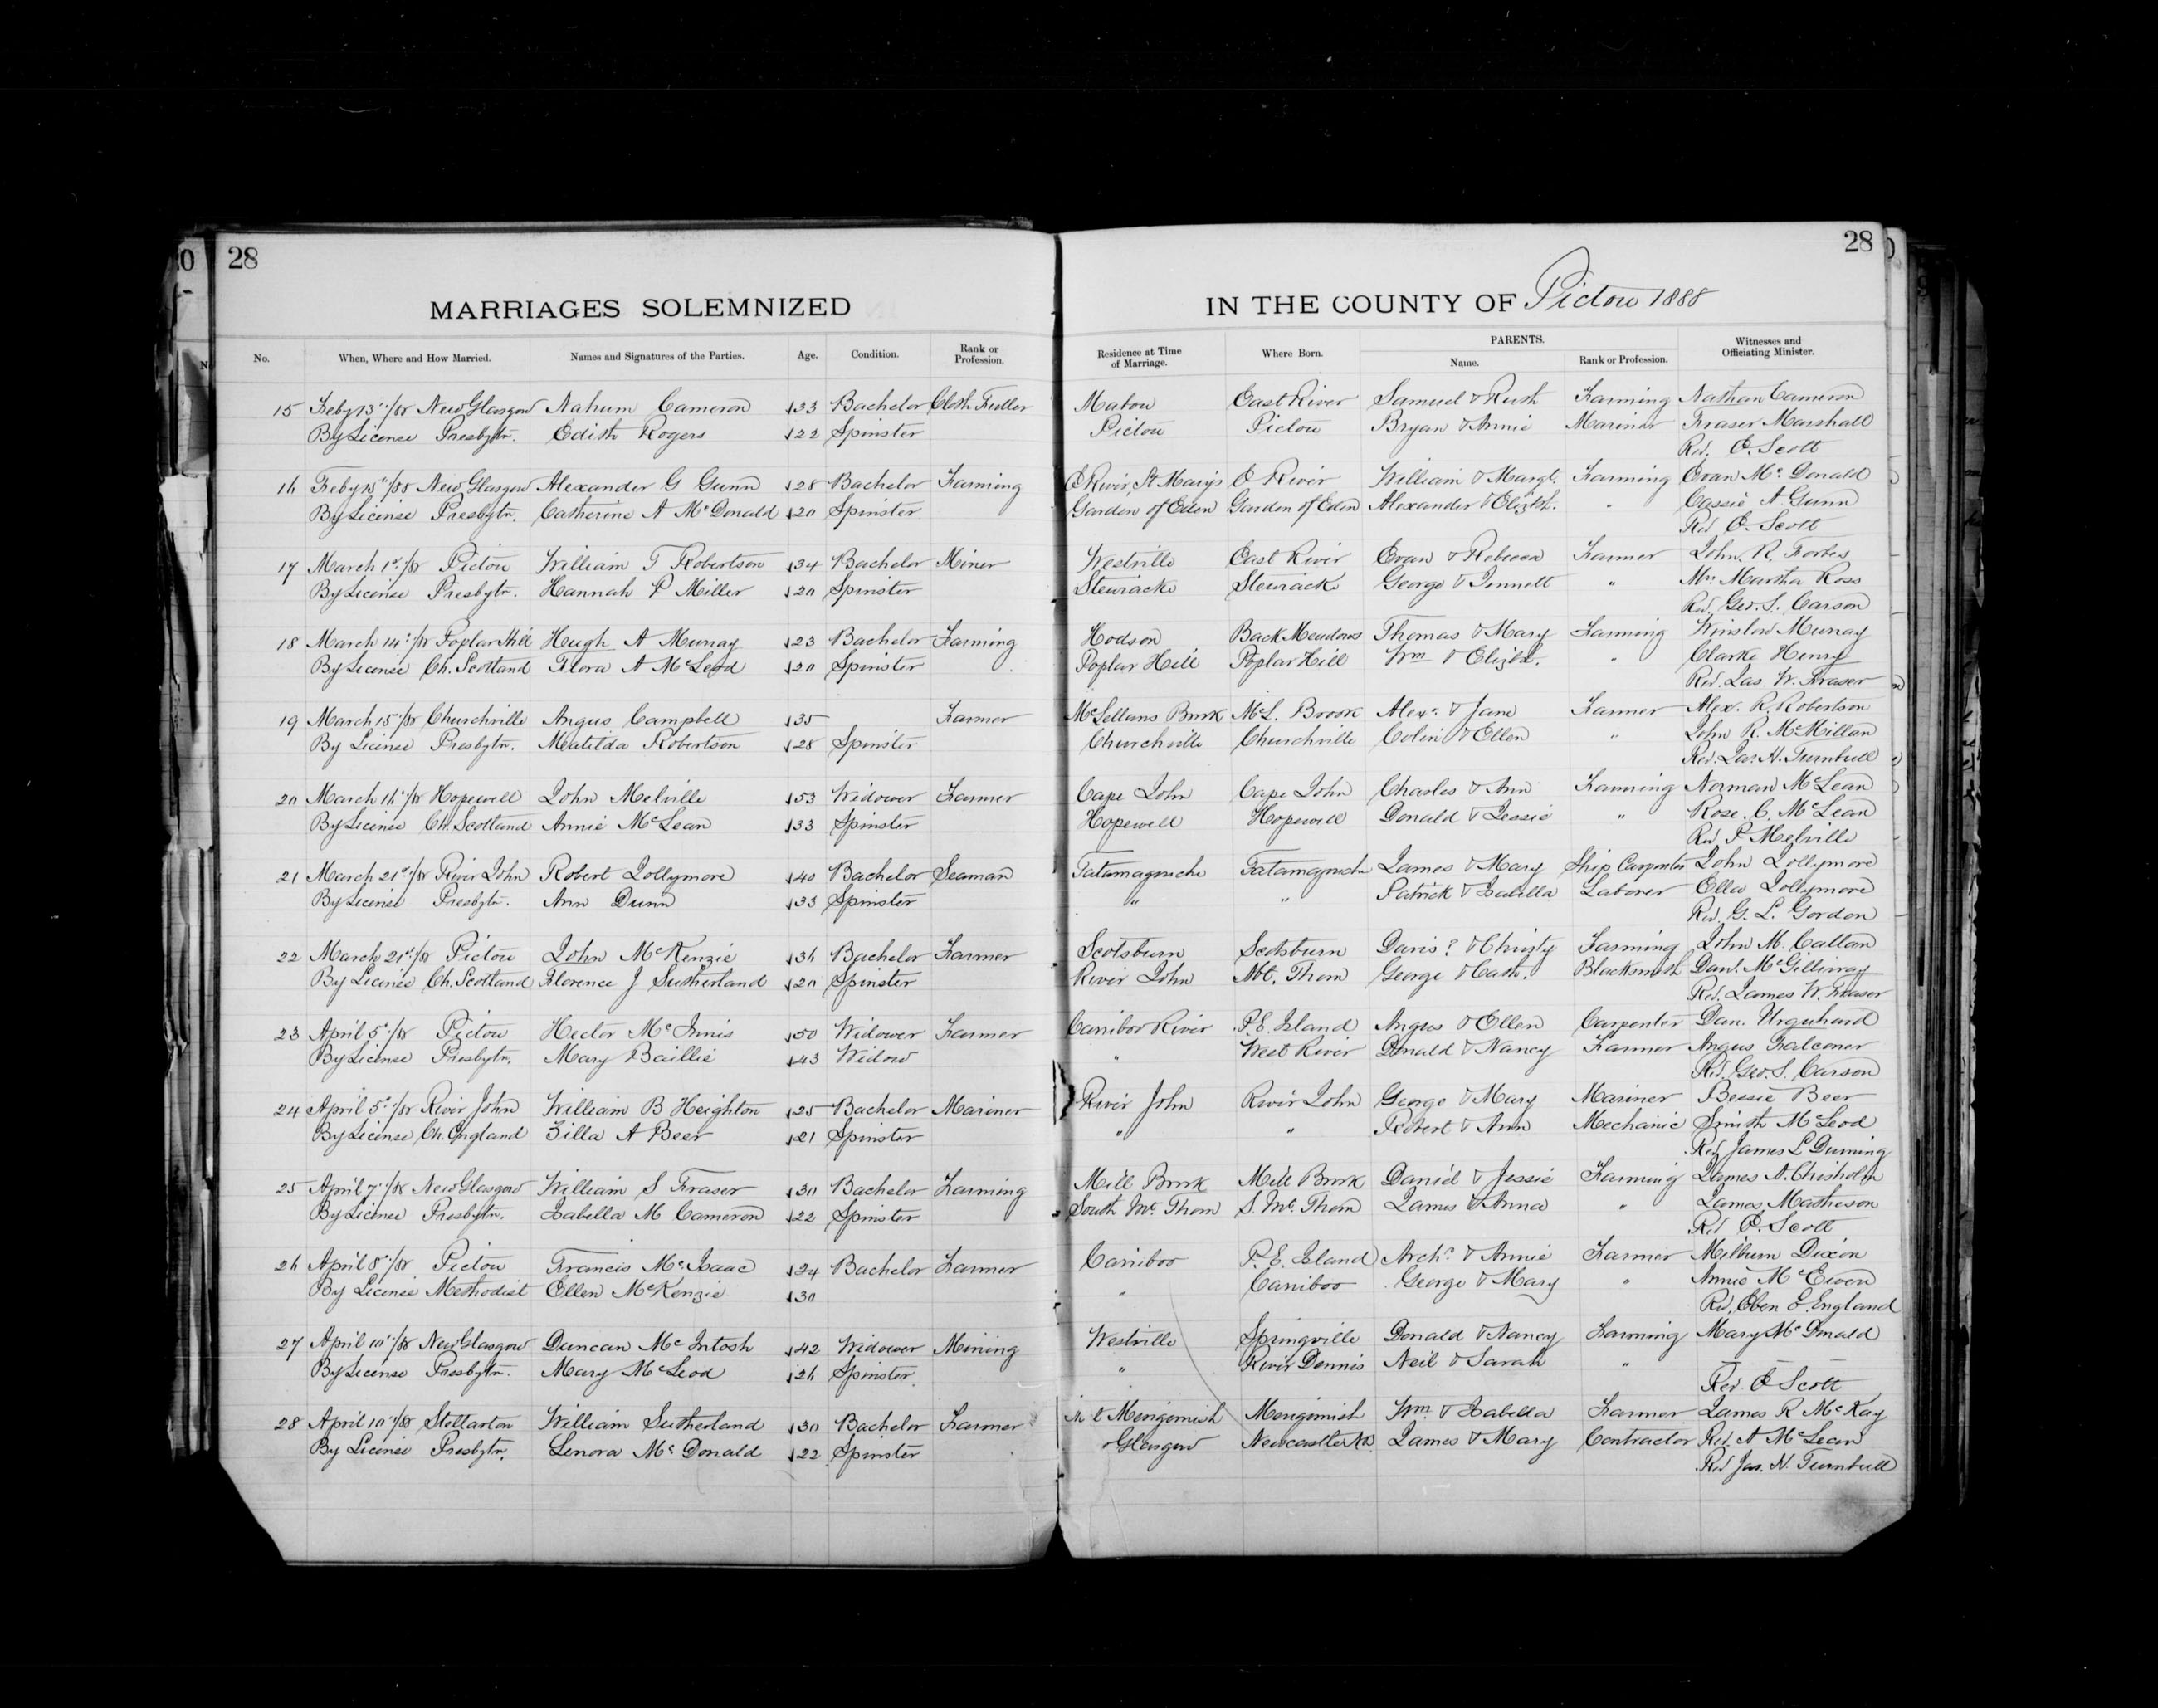 28
28
MARRIAGES SOLEMNIZED IN THE COUNTY OF Pictou 1888
No. When, Where and How Married. Names and Signatures of the Parties. Age. Condition. Rank or Profession. Residence at Time of Marriage. Where Born. PARENTS. Name. Rank or Profession. Witnesses and Officiating Minister.
15 Feby 13"/88 New Glasgow Nahum Cameron 33 Bachelor Cloth Fuller Mabou East River Samuel & Ruth Farming Nathan Cameron
By License Presbytn. Edith Rogers 22 Spinster Pictou Pictou Bryan & Annie Mariner Fraser Marshall
Rev. E. Scott
16 Feby 15"/88 New Glasgow Alexander G Gunn 28 Bachelor Farming E River, St Marys E River William & Margt. Farming Evan Mc Donald
By License Presbytn. Catherine A McDonald 20 Spinster Garden of Eden Garden of Eden Alexander & Elizth. " Cassie A Gunn
Rev E. Scott
17 March 1st/88 Pictou William T Robertson 34 Bachelor Miner Westville East River Evan & Rebecca Farmer John R. Forbes
By License Presbytr. Hannah P Miller 20 Spinster Stewiacke Stewiacke George & Jennett " Mrs Martha Ross
Rev. Geo. S. Carson
18 March 14"/88 Poplar Hill Hugh A Murray 23 Bachelor Farming Hodson Back Meadows Thomas & Mary Farming Winslow Murray
By License Ch. Scotland Flora A McLeod 20 Spinster Poplar Hill Poplar Hill Wm & Elizbh. " Clarke Henry
Rev. Jas. W. Fraser
19 March 15"/88 Churchville Angus Campbell 35 Farmer McLellans Brook McL. Brook Alexr. & Jane Farmer Alex. R. Robertson
By License Presbytn. Matilda Robertson 28 Spinster Churchville Churchville Colin & Ellen " John R. McMillan
Rev. Jas. H. Turnbull
20 March 16"/88 Hopewell John Melville 53 Widower Farmer Cape John Cape John Charles & Ann Farming Norman McLean
By License Ch. Scotland Annie McLean 33 Spinster Hopewell Hopewell Donald & Jessie " Rose. C. McLean
Rev P Melville
21 March 21st/88 River John Robert Jollymore 40 Bachelor Seaman Tatamagouche Tatamagouche James & Mary Ship Carpenter John Jollymore
By License Presbytr. Ann Dunn 33 Spinster " " Patrick & Isabella Laborer Ella Jollymore
Rev. G. L. Gordon
22 March 21st/88 Pictou John McKenzie 36 Bachelor Farmer Scotsburn Scotsburn Davis? & Christy Farming John M. Callan
By License Ch. Scotland Florence J Sutherland 20 Spinster River John Mt. Thom George & Cath. Blacksmith Danl. McGillivray
Rev. James W. Fraser
23 April 5"/88 Pictou Hector McInnis 50 Widower Farmer Cariboo River P.E. Island Angus & Ellen Carpenter Dan. Urquhard
By License Presbytn. Mary Baillie 43 Widow " West River Donald & Nancy Farmer Angus Falconer
Rev. Geo. S. Carson
24 April 5"/88 River John William B Heighton 25 Bachelor Mariner River John River John George & Mary Mariner Bessie Beer
By License Ch. England Zilla A Beer 21 Spinster " " Robert & Ann Mechanic Smith McLeod
Rev James L Downing
25 April 7"/88 New Glasgow William S Fraser 30 Bachelor Farming Mill Brook Mill Brook Daniel & Jessie Farming James A. Chisholm
By License Presbytn. Isabella M Cameron 22 Spinster South Mt. Thom S. Mt. Thom James & Anna " James Matheson
Rev E. Scott
26 April 8"/88 Pictou Francis McIsaac 24 Bachelor Farmer Cariboo P.E. Island Archd. & Annie Farmer Milburn Dixon
By License Methodist Ellen McKenzie 30 " Cariboo George & Mary " Annie McEwen
Rev. Eben E. England
27 April 10"/88 New Glasgow Duncan McIntosh 42 Widower Mining Westville Springville Donald & Nancy Farming Mary McDonald
By License Presbytr. Mary McLeod 26 Spinster " River Dennis Neil & Sarah " — — —
Rev. E Scott
28 April 10"/88 Stellarton William Sutherland 30 Bachelor Farmer Merigomish Merigomish Wm. & Isabella Farmer James R McKay
By License Presbytn. Lenora McDonald 22 Spinster Glasgow Newcastle NB James & Mary Contractor Rev. A McLean
Rev Jas. H. Turnbull